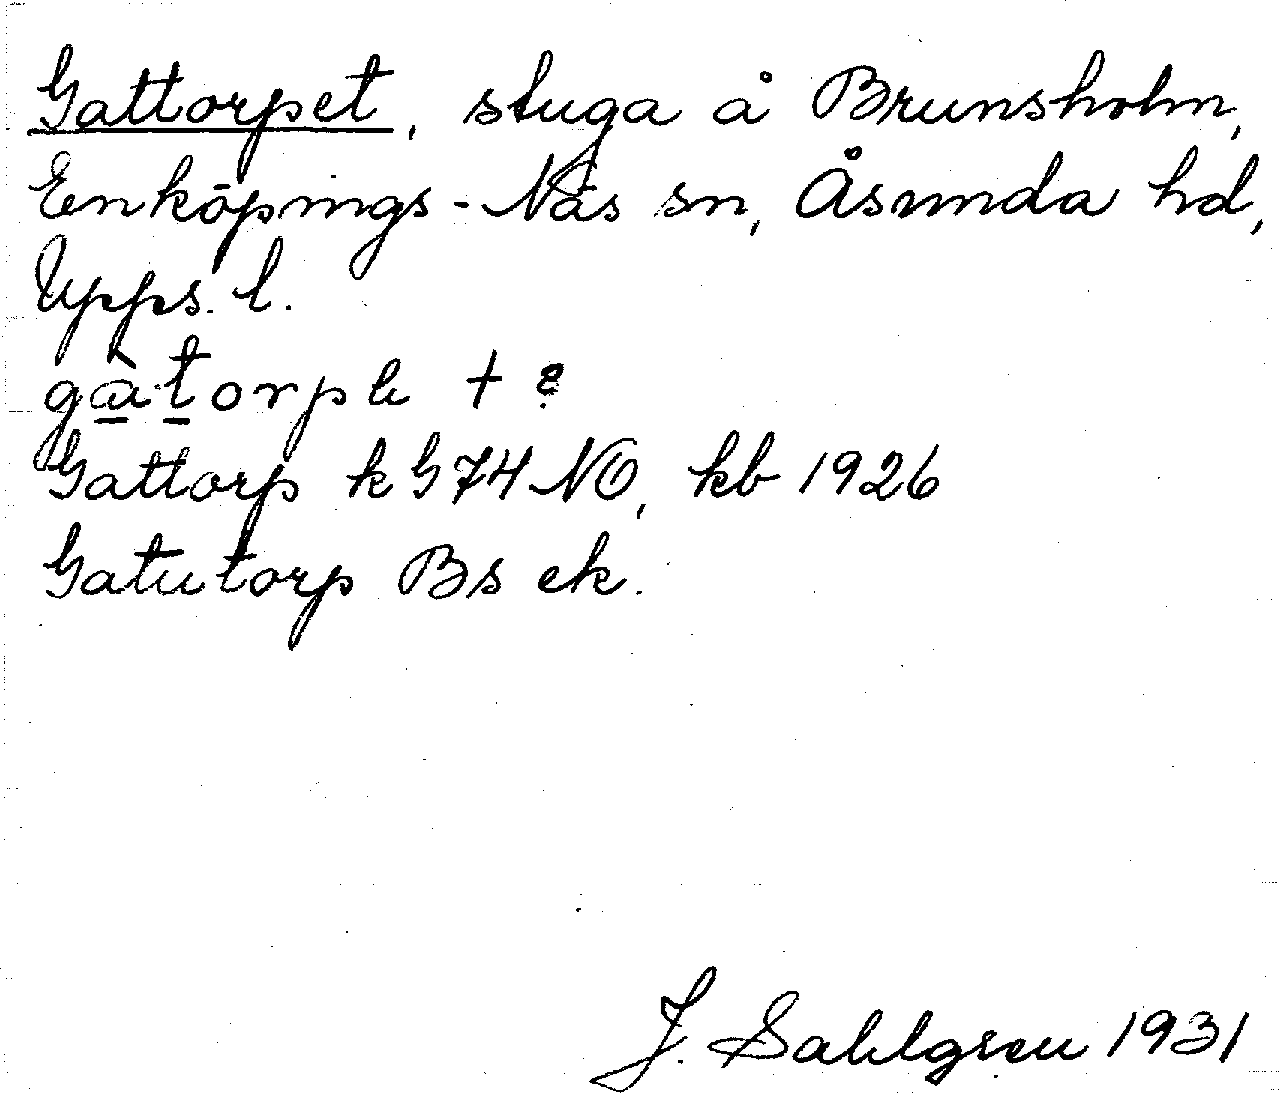 Gattorpet, stuga å Brunsholm,
Enköpings-Näs sn, Åsunda hd,
Upps. l.
gàtorpe + ?
Gattorp k G 74 NO, kb 1926
Gatutorp Bs ek.
J. Sahlgren 1931